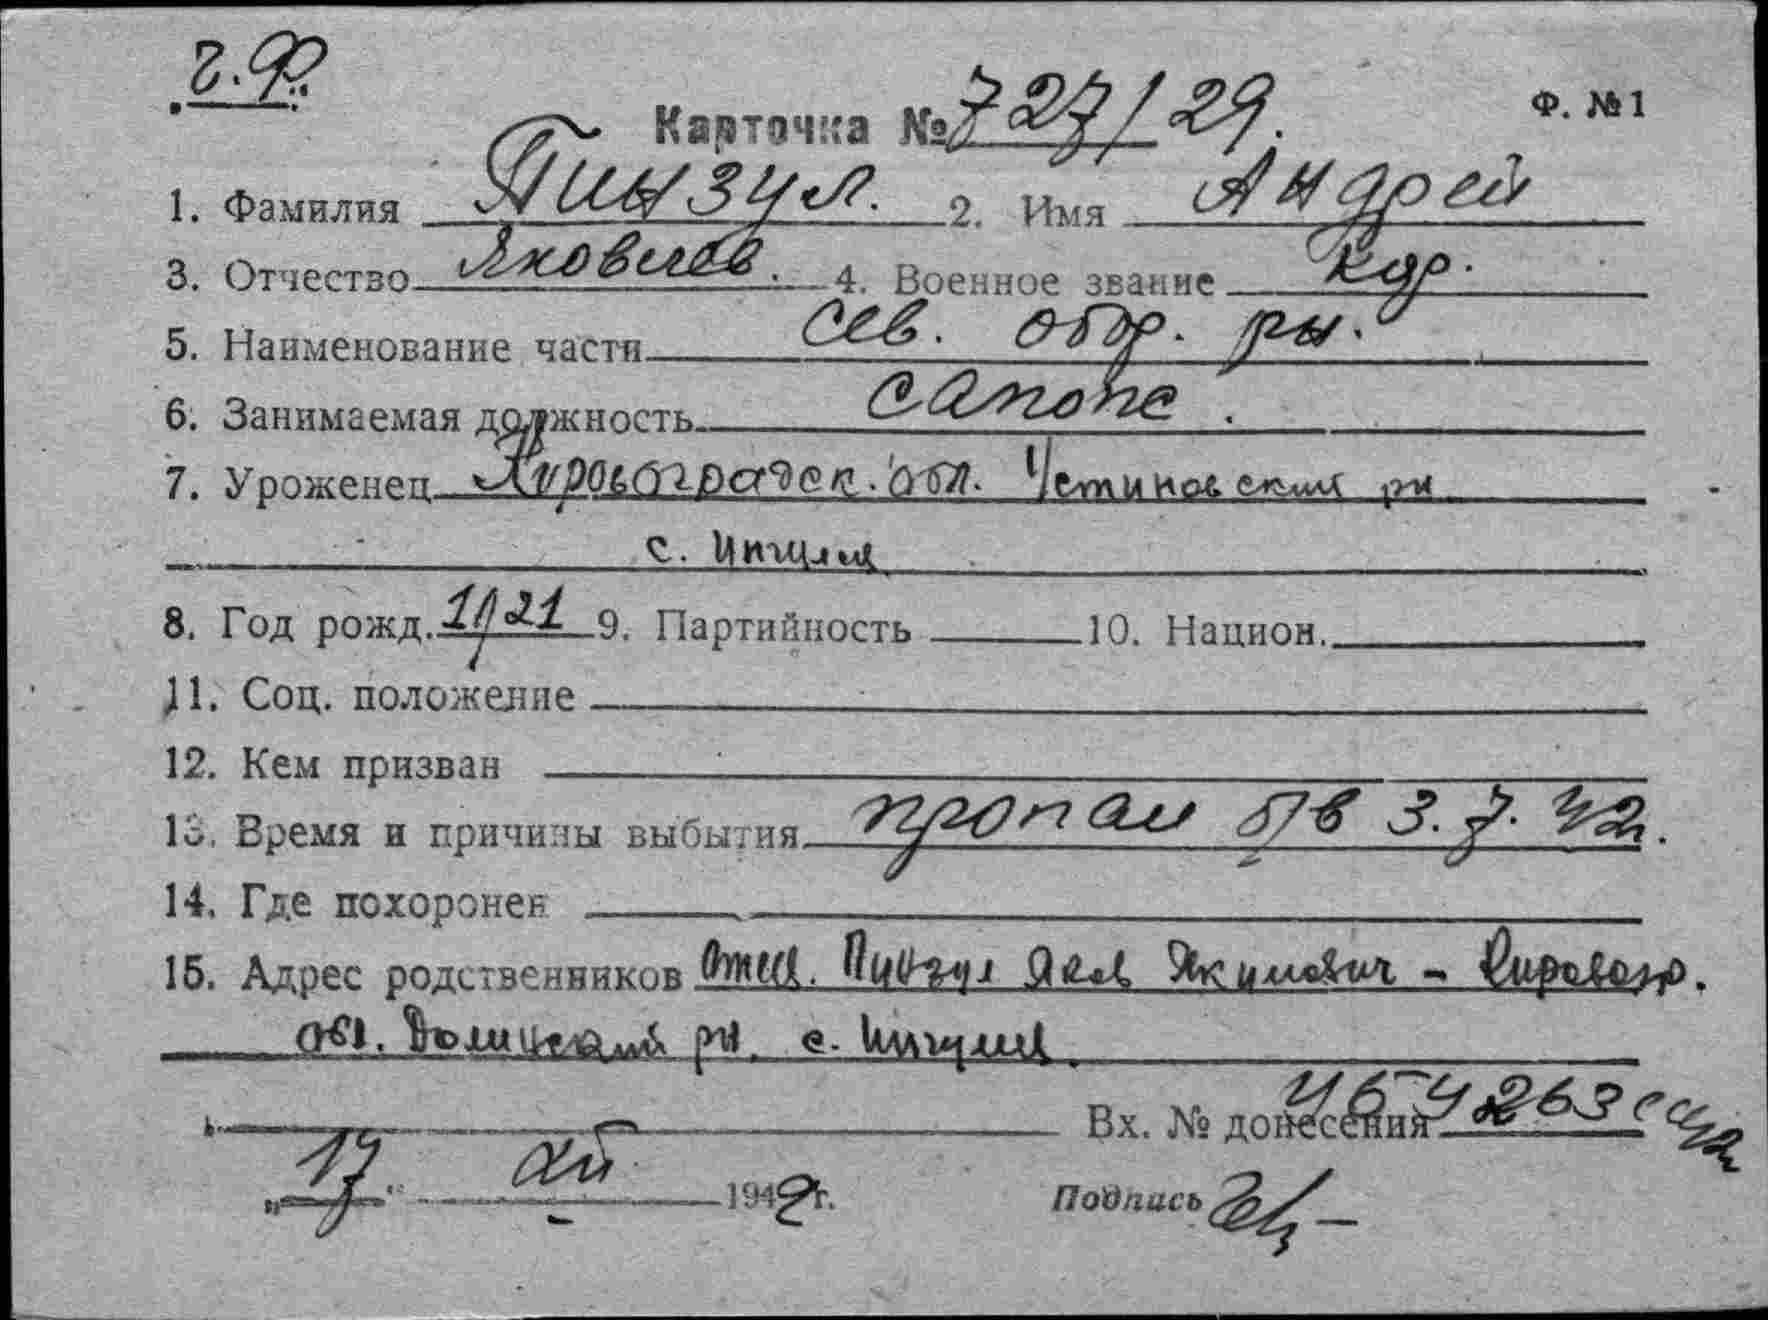 г.Ф.
Карточка № 727/29. Ф. №1
1. Фамилия Пинзул. 2. Имя Андрей
3. Отчество Яковлев. 4. Военное звание кдр.
5. Наименование части Сев. обор. рн.
6. Занимаемая должность
7. Уроженец Кировоградск. обл. Устиновский рн
с. Ингулец
8. Год рожд. 1921 9. Партийность 10. Национ.
11. Соц. положение
12. Кем призван
13. Время и причины выбытия пропал б/в 3.7.42.
14. Где похоронен
15. Адрес родственников Отец. Пинзул Яков Якимович – Кировогр.
обл. Долинский рн. с. Ингулец.
Вх. № донесения
„17“ XII 1942г. Подпись